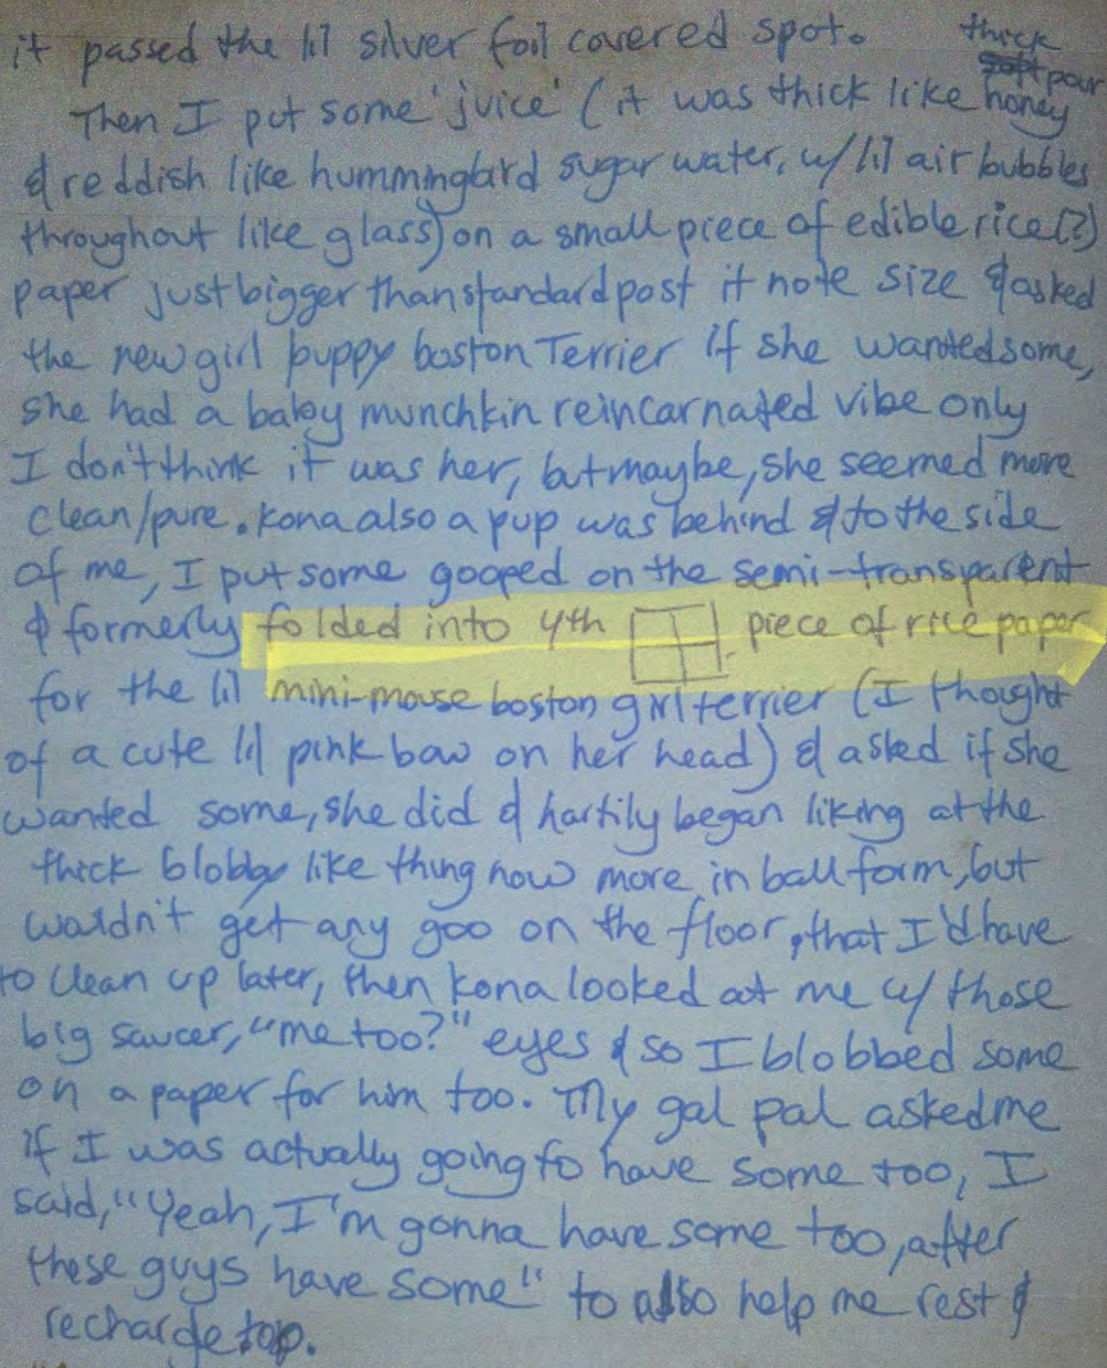 it passed the lil silver foil covered spot. thick
pour
Then I put some 'juice' (it was thick like honey
& reddish like hummingbird sugar water, w/ lil air bubbles
throughout like glass) on a small piece of edible rice(?)
paper just bigger than standard post it note size & asked
the new girl puppy boston Terrier if she wanted some,
she had a baby munchkin reincarnated vibe only
I don't think it was her, but maybe, she seemed more
clean/pure. Kona also a pup was behind & to the side
of me, I put some gooped on the semi-transparent
& formerly folded into 4th piece of rice paper
for the lil mini-mouse boston girl terrier (I thought
of a cute lil pink bow on her head) & asked if she
wanted some, she did & hartily began liking at the
thick blobby like thing now more in ball form, but
wouldn't get any goo on the floor, that I'd have
to clean up later, then Kona looked at me w/ those
big saucer, "me too?" eyes & so I blobbed some
on a paper for him too. My gal pal asked me
if I was actually going to have some too, I
said, "Yeah, I'm gonna have some too, after
these guys have some" to also help me rest &
recharge too.